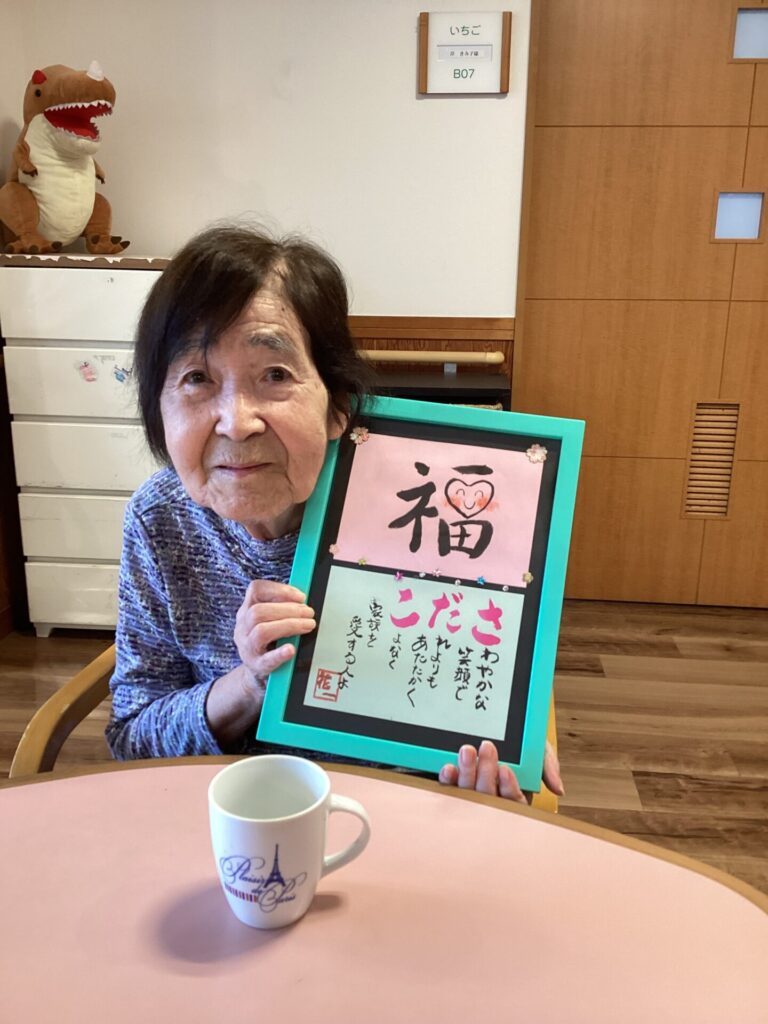 いちご
B07
福
さわやかな
笑顔で
だれよりも
あたたかく
こよなく
家族を
愛する人よ
花一
Plaisir
de
Paris